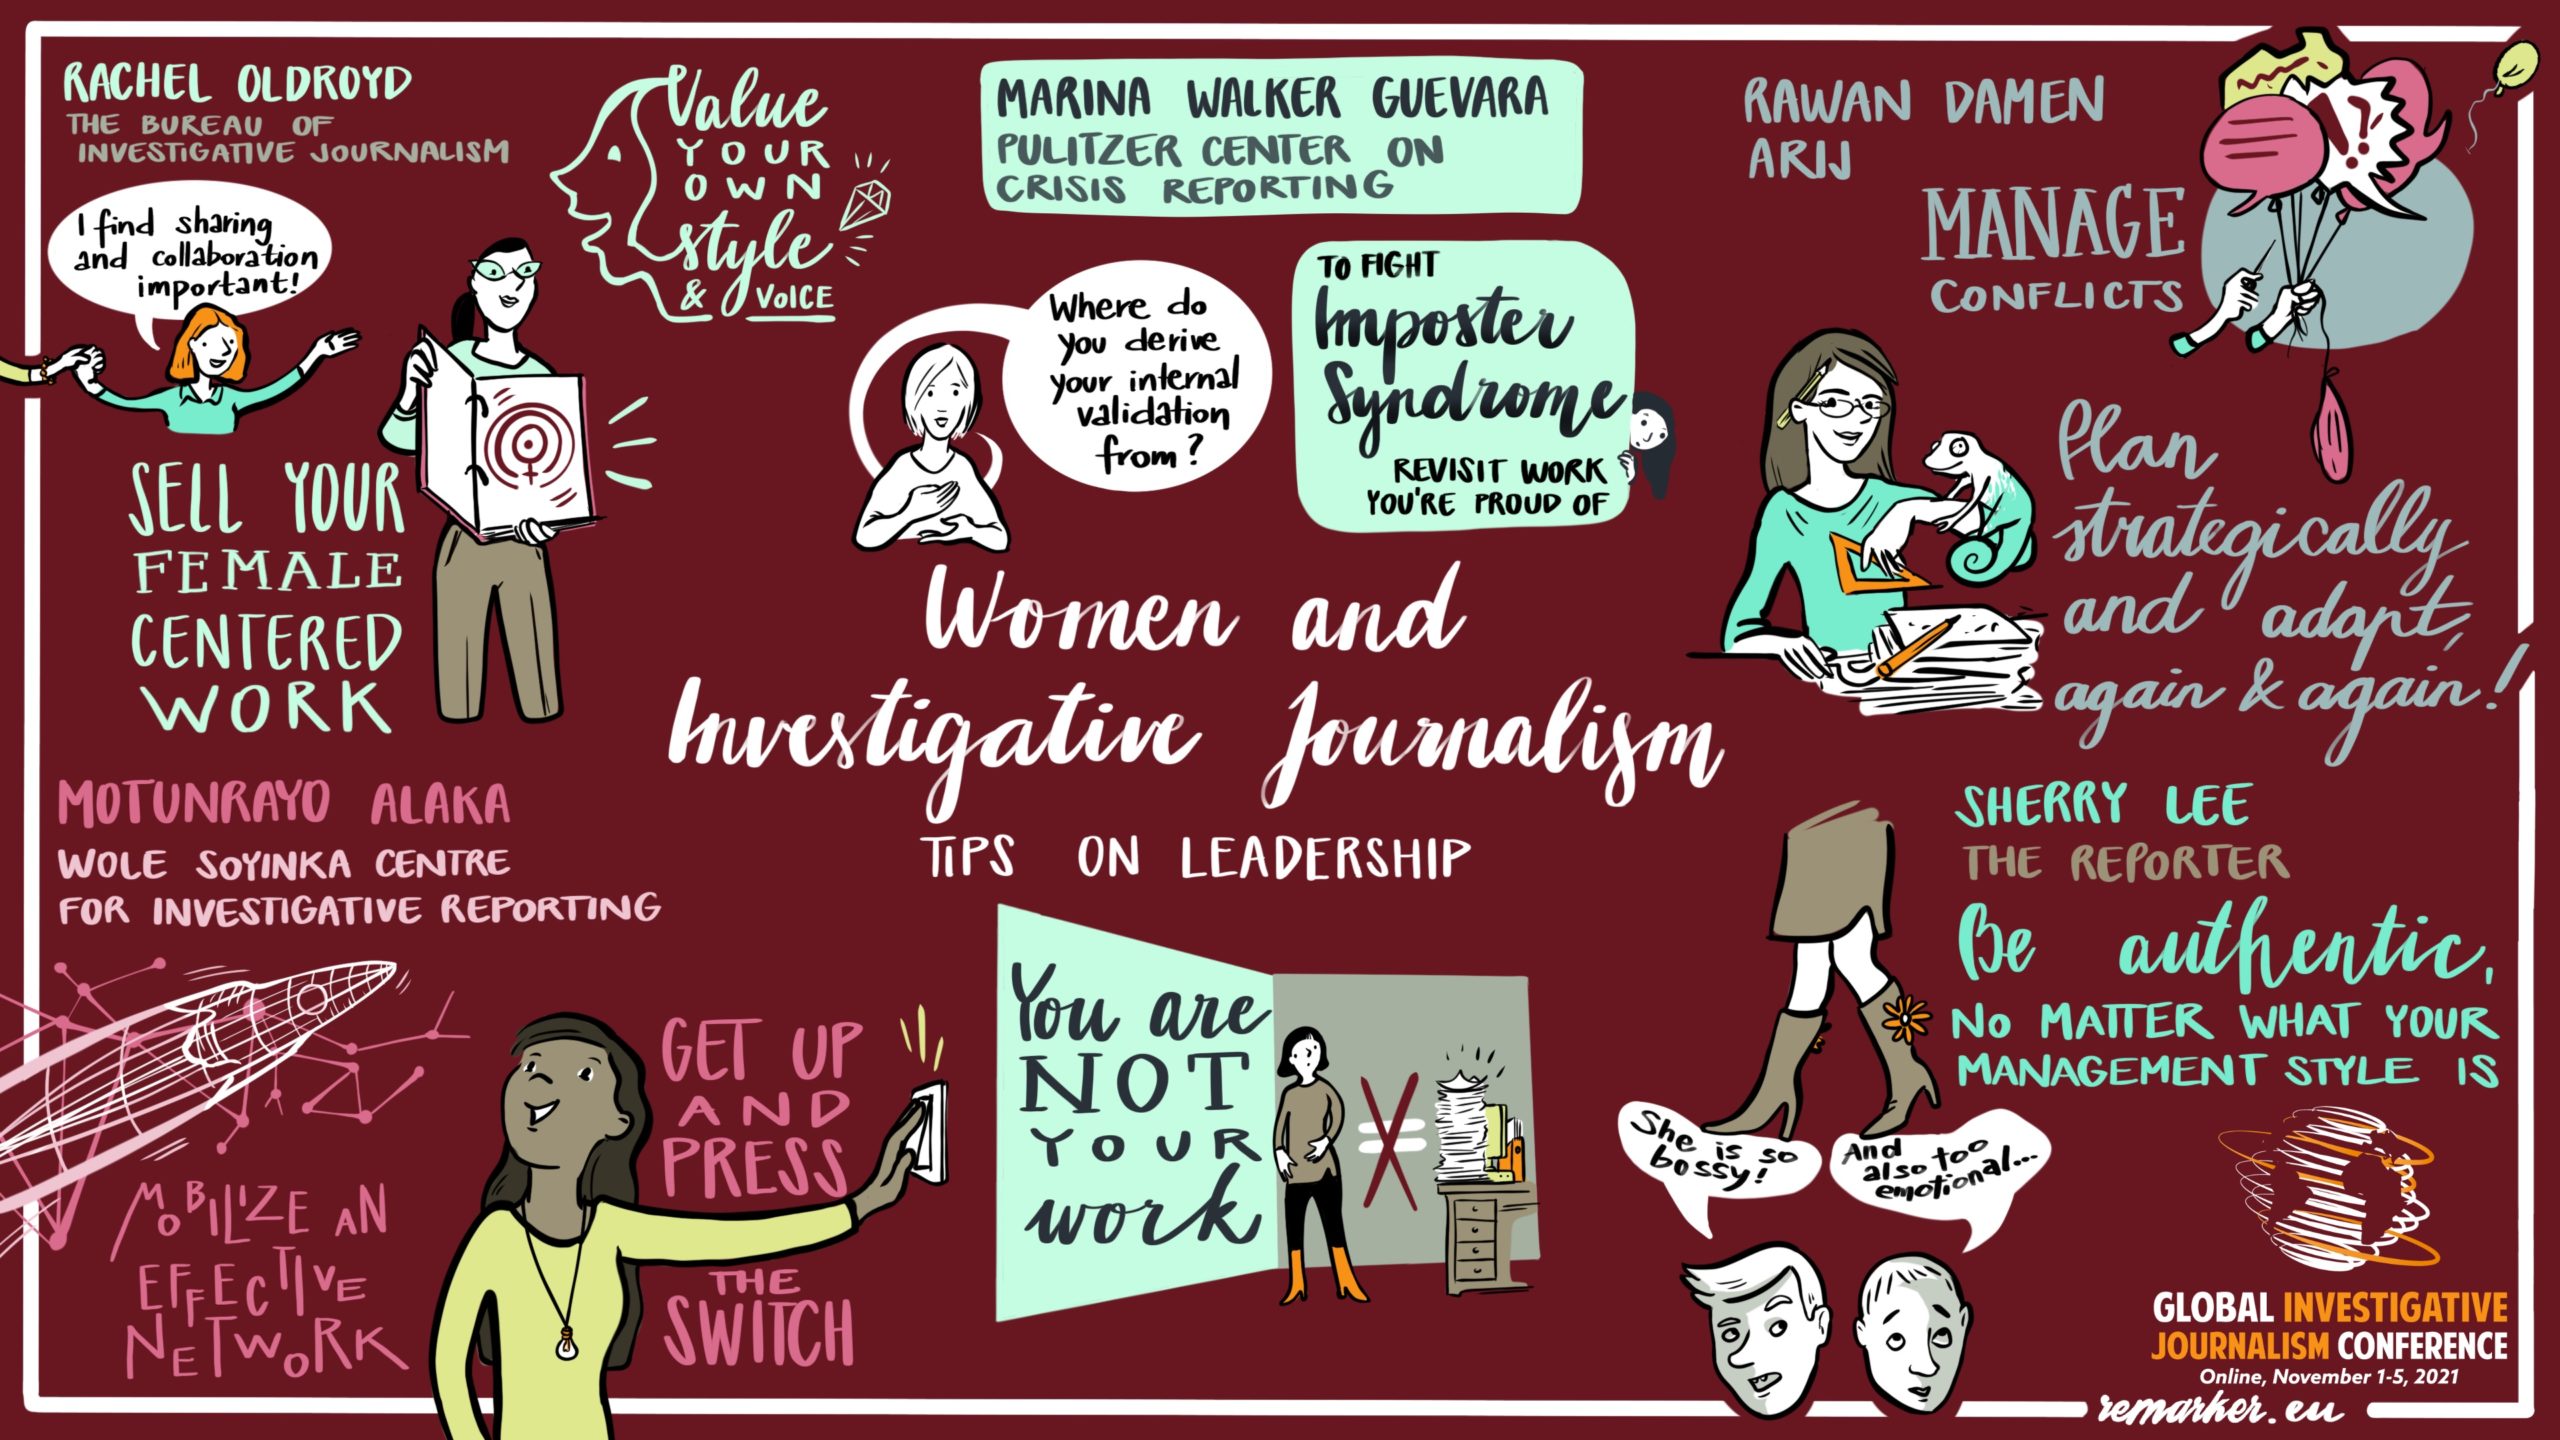 RACHEL OLDROYD
THE BUREAU OF
INVESTIGATIVE JOURNALISM
I find sharing
and collaboration
important!
SELL YOUR
FEMALE
CENTERED
WORK
Value
YOUR
OWN
style
& VOICE
MARINA WALKER GUEVARA
PULITZER CENTER ON
CRISIS REPORTING
Where do
you derive
your internal
validation
from?
TO FIGHT
Imposter
Syndrome
REVISIT WORK
YOU'RE PROUD OF
RAWAN DAMEN
ARIJ
MANAGE
CONFLICTS
!?
Plan
strategically
and adapt,
again & again!
Women and
Investigative Journalism
TIPS ON LEADERSHIP
MOTUNRAYO ALAKA
WOLE SOYINKA CENTRE
FOR INVESTIGATIVE REPORTING
MOBILIZE AN
EFFECTIVE
NETWORK
GET UP
AND
PRESS
THE
SWITCH
You are
NOT
YOUR
work
SHERRY LEE
THE REPORTER
Be authentic,
NO MATTER WHAT YOUR
MANAGEMENT STYLE IS
She is so
bossy!
And
also too
emotional...
GLOBAL INVESTIGATIVE
JOURNALISM CONFERENCE
Online, November 1-5, 2021
remarker.eu